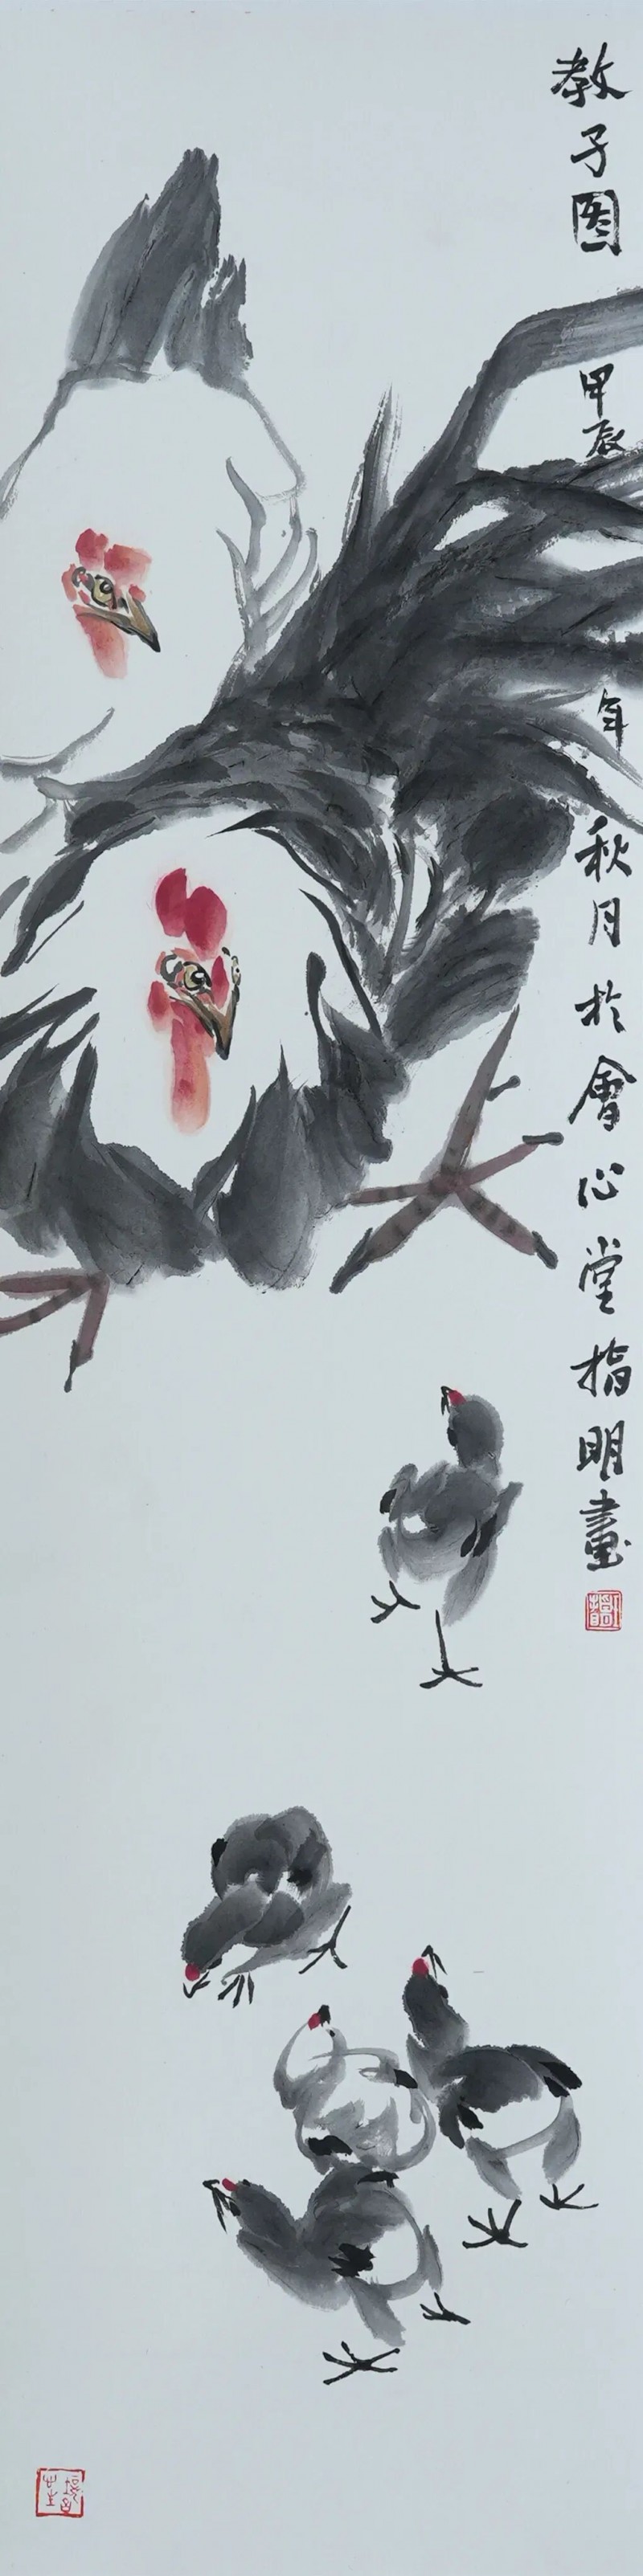 教子图 甲辰年秋月於會心堂指明畫